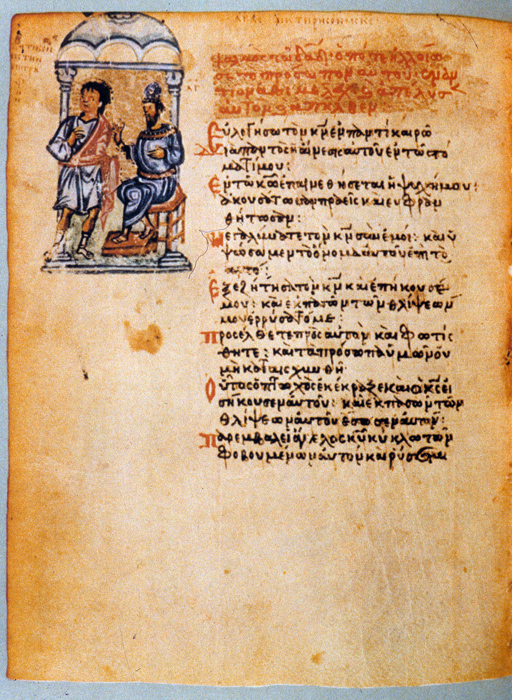 ψαλμὸς τῶ δαδ· ὁπότε ἠλλοίω
σε τὸ πρόσωπον αὐτοῦ· ἐναν
τίον ἀβιμέλεχ κ ἀπέλυσ
αὐτὸν κ ἀπῆλθεν
Εὐλογήσω τὸν κν ἐν παντὶ καιρῶ
διαπαντὸς ἡ αἴνεσις αὐτοῦ ἐν τῶ στό
ματί μου:
Ἐν τῶ κω ἐπαινεθήσεται ἡ ψυχή μου:
ἀκουσάτωσαν πραεῖς και εὐφραν
θήτωσαν:
Μεγαλύνατε τὸν κν σὺν ἐμοί: και ὑ
ψώσωμεν τὸ ὄνομα αὐτοῦ ἐπι το
αυτό:
Ἐξεζήτησα τὸν κν και ἐπήκουσέ
μου: και ἐκ πασῶν τῶν θλίψεων
μου ἐρρύσατό με:
Προσέλθετε πρὸς αὐτὸν και φωτίσ
θητε: και τὰ πρόσωπα ὑμῶν οὐ
μὴ καταισχυνθῆ:
Οὗτος ὁ πτωχὸς ἐκέκραξε και ὁ κς εἰ
σήκουσεν αὐτοῦ: και ἐκ πασῶν τῶν
θλίψεων αὐτοῦ ἔσωσεν αὐτόν:
Παρεμβαλεῖ ἄγγελος κυ κύκλω τῶν
φοβουμένων αὐτὸν και ῥύσεται